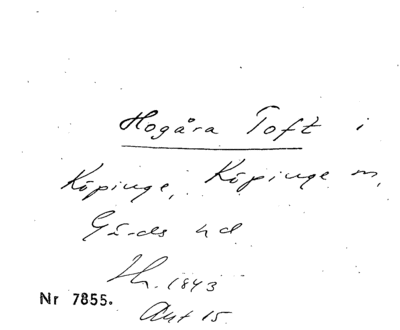 Hogåra Toft i
Köpinge, Köpinge sn,
Gärds hd
Lh. 1843
Akt 15
Nr 7855.